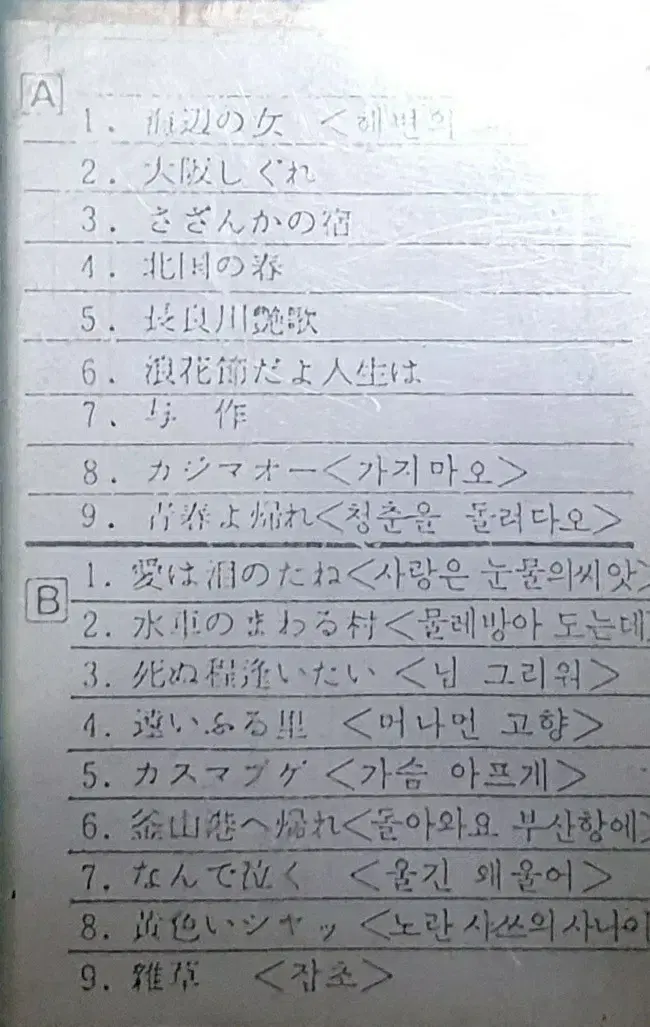 A
1. 海辺の女 <해변의
2. 大阪しぐれ
3. さざんかの宿
4. 北国の春
5. 長良川艶歌
6. 浪花節だよ人生は
7. 与 作
8. カジマオー<가지마오>
9. 青春よ帰れ<청춘을 돌려다오>
B
1. 愛は泪のたね<사랑은 눈물의씨앗>
2. 水車のまわる村<물레방아 도는데
3. 死ぬ程逢いたい <님 그리워>
4. 遠いふる里 <머나먼 고향>
5. カスマプゲ <가슴 아프게>
6. 釜山港へ帰れ<돌아와요 부산항에>
7. なんで泣く <울긴 왜울어>
8. 黄色いシャツ <노란 샤쓰의 사나이
9. 雑草 <잡초>